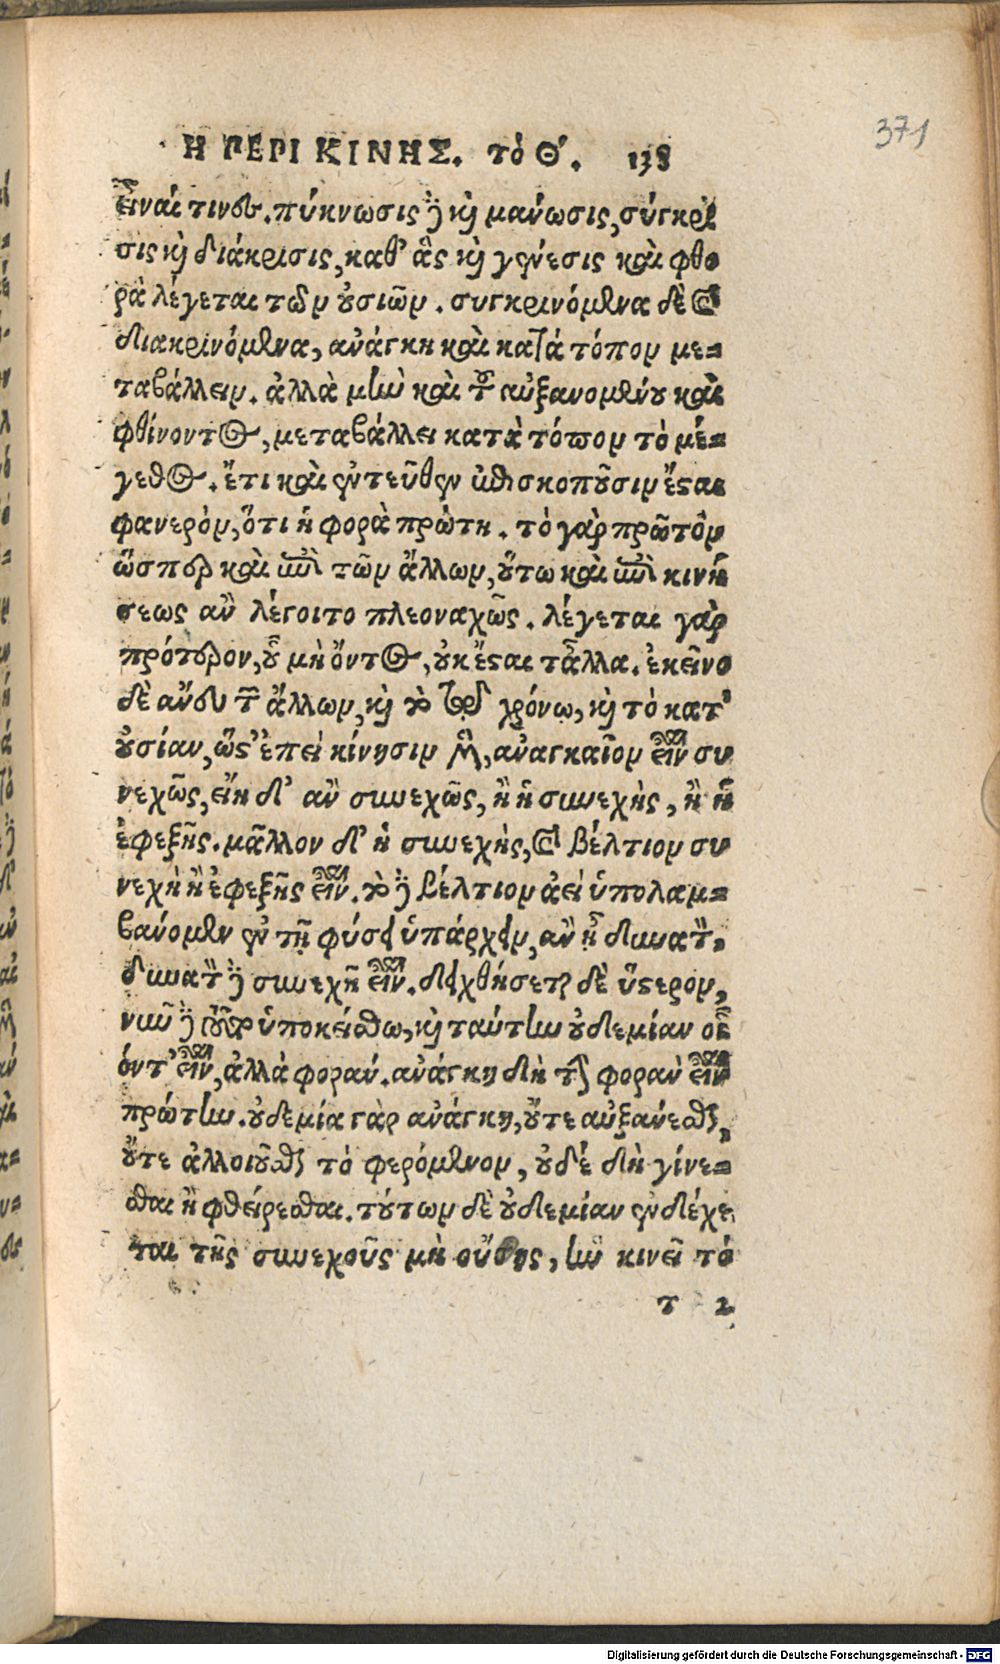 Η ΠΕΡΙ ΚΙΝΗΣ. τὸ Θ΄. 138
371
εἶναί τινες. πύκνωσις δὲ καὶ μάνωσις, σύγκρι
σις καὶ διάκρισις, καθ' ἃς καὶ γένεσις καὶ φθο
ρὰ λέγεται τῶν οὐσιῶν. συγκρινόμενα δὲ καὶ
διακρινόμενα, ἀνάγκη καὶ κατὰ τόπον με=
ταβάλλειν. ἀλλὰ μὴν καὶ τοῦ αὐξανομένου καὶ
φθίνοντος, μεταβάλλει κατὰ τόπον τὸ μέ=
γεθος. ἔτι καὶ ἐντεῦθεν ἐπισκοποῦσιν ἔσται
φανερὸν, ὅτι ἡ φορὰ πρώτη. τὸ γὰρ πρῶτον
ὥσπερ καὶ ἐπὶ τῶν ἄλλων, οὕτω καὶ ἐπὶ κινή
σεως ἂν λέγοιτο πλεοναχῶς. λέγεται γὰρ
πρότερον, οὗ μὴ ὄντος, οὐκ ἔσται τἆλλα. ἐκεῖνο
δὲ ἄνευ τῶν ἄλλων, καὶ τὸ τῷ χρόνῳ, καὶ τὸ κατ'
οὐσίαν, ὥστ' ἐπεὶ κίνησιν μὲν, ἀναγκαῖον εἶναι συ
νεχῶς, εἴη δ' ἂν συνεχῶς, ἢ ἡ συνεχὴς, ἢ ἡ
ἐφεξῆς. μᾶλλον δ' ἡ συνεχὴς, καὶ βέλτιον συ
νεχῆ ἢ ἐφεξῆς εἶναι. τὸ δὲ βέλτιον ἀεὶ ὑπολαμ=
βάνομεν ἐν τῇ φύσει ὑπάρχειν, ἂν ᾖ δυνατὸν,
δυνατὸν δὲ συνεχῆ εἶναι. δειχθήσεται δὲ ὕστερον,
νῦν δὲ τοῦθ' ὑποκείσθω, καὶ ταύτην οὐδεμίαν οἷ
όντ' εἶναι, ἀλλὰ φοράν. ἀνάγκη δὴ τὴν φορὰν εἶναι
πρώτην. οὐδεμία γὰρ ἀνάγκη, οὔτε αὐξάνεσθαι,
οὔτε ἀλλοιοῦσθαι τὸ φερόμενον, οὐδέ δὴ γίνε=
σθαι ἢ φθείρεσθαι. τούτων δὲ οὐδεμίαν ἐνδέχε
ται τῆς συνεχοῦς μὴ οὔσης, ἣν κινεῖ τὸ
τ 2
Digitalisierung gefördert durch die Deutsche Forschungsgemeinschaft - DFG